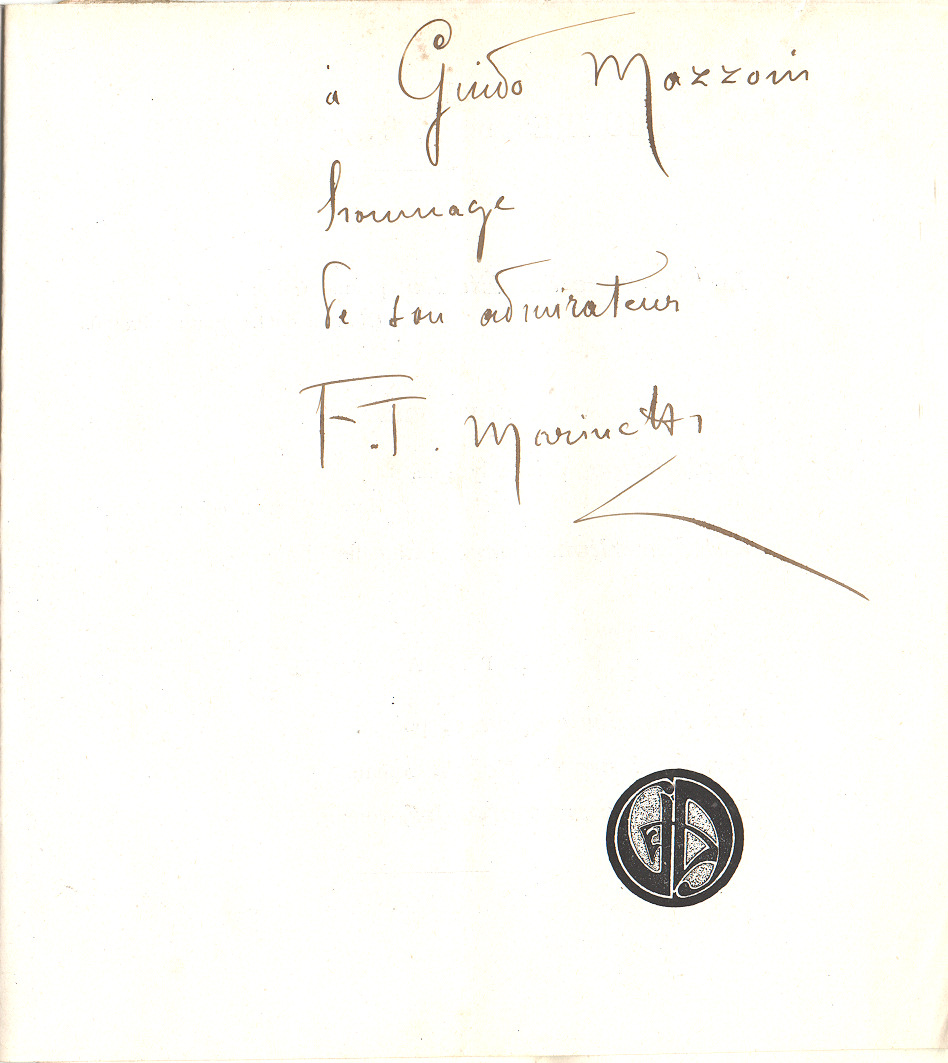 à Guido Mazzoni
hommage
de son admirateur
F. T. Marinetti